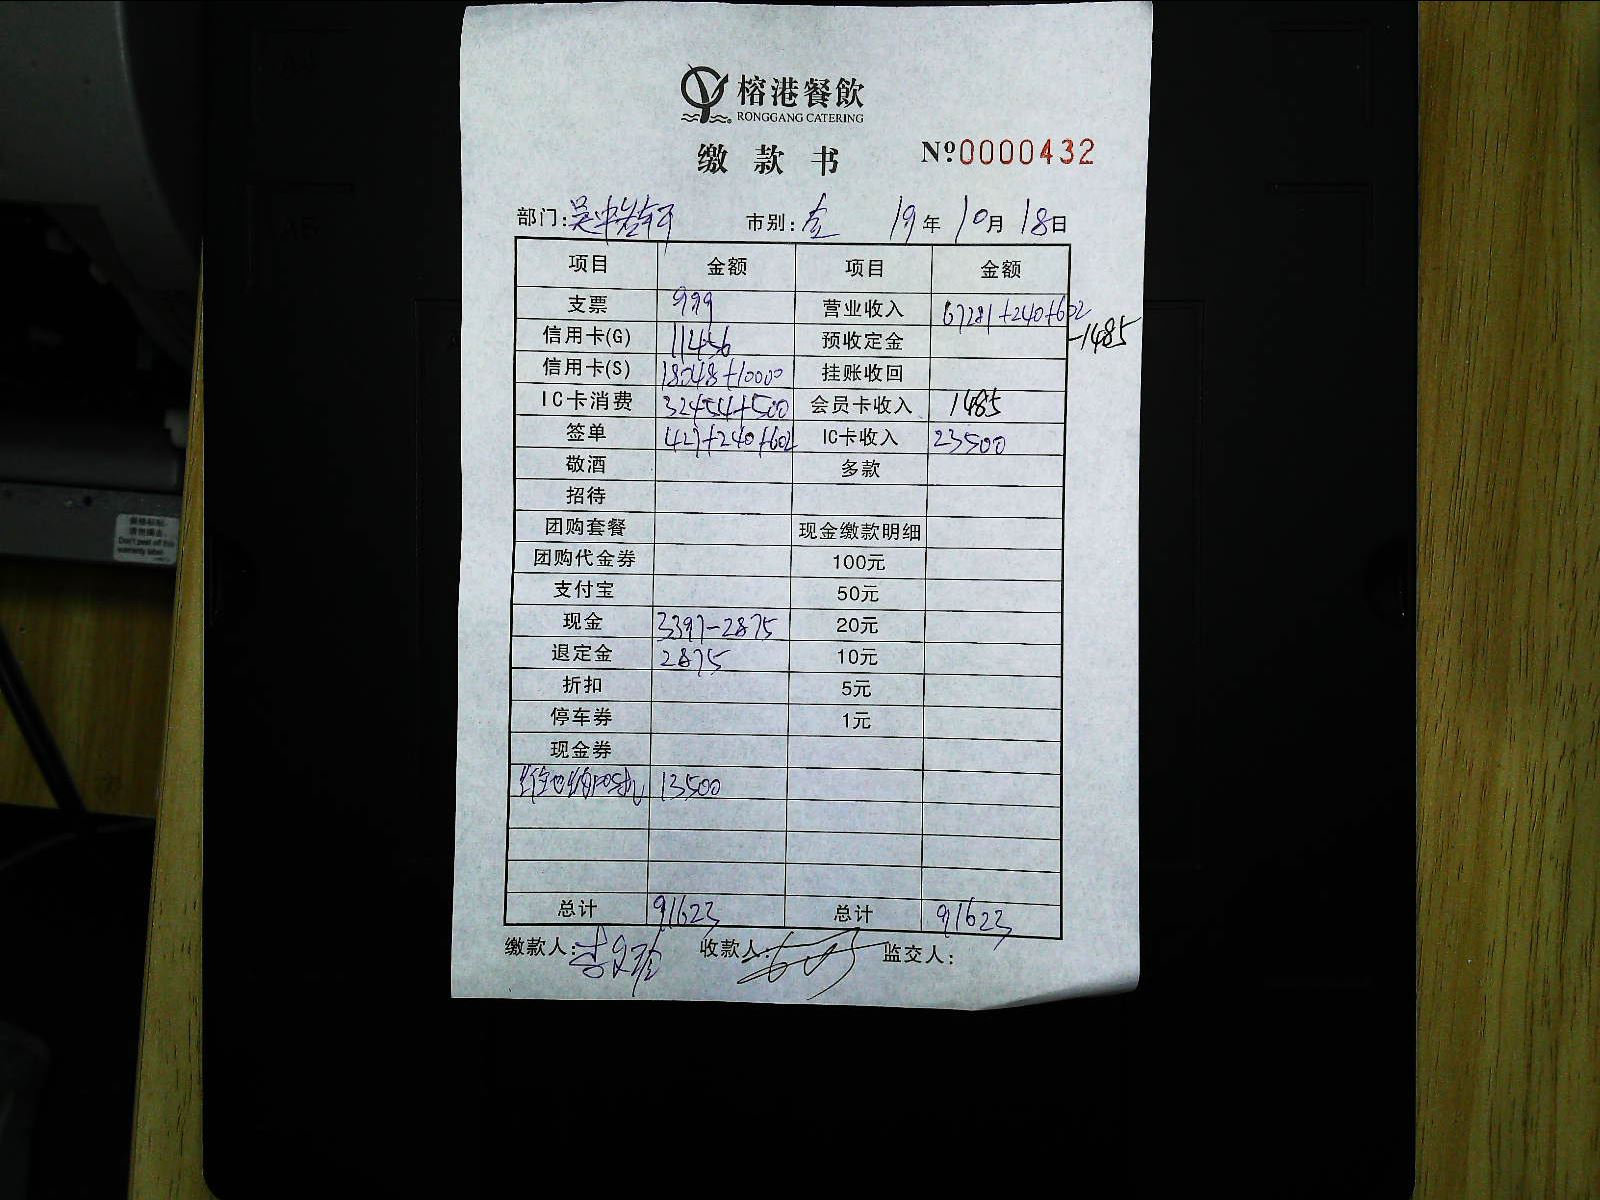 榕港餐飲
RONGGANG CATERING
缴款书 Nº0000432
部门:吴中 市别: 19年10月18日
项目 金额 项目 金额
支票 999 营业收入 67281+240+602-1485
信用卡(G) 11456 预收定金
信用卡(S) 18048+10000 挂账收回
IC卡消费 32454+500 会员卡收入 1485
签单 427+240+602 IC卡收入 23500
敬酒 多款
招待
团购套餐 现金缴款明细
团购代金券 100元
支付宝 50元
现金 3397-2875 20元
退定金 2875 10元
折扣 5元
停车券 1元
现金券
13500
总计 91623 总计 91623
缴款人: 收款人: 监交人:
Don't peel off this
warranty label